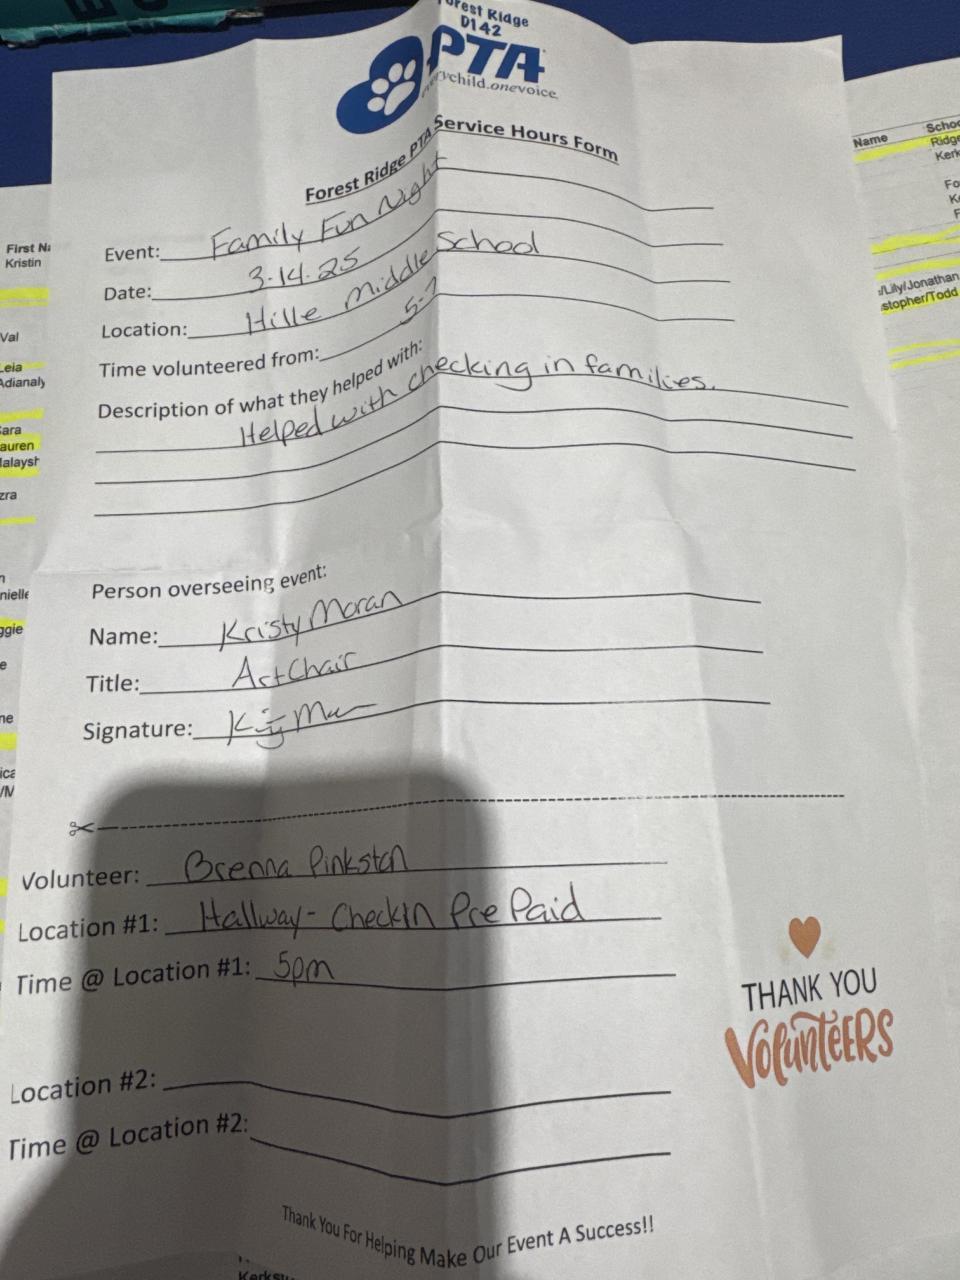 Forest Ridge
D142
PTA
everychild.onevoice.
Forest Ridge PTA Service Hours Form
Event: Family Fun Night
Date: 3-14-25
Location: Hille Middle School
Time volunteered from: 5-7
Description of what they helped with:
Helped with checking in families.
Person overseeing event:
Name: Kristy Moran
Title: Act Chair
Signature:
Volunteer: Brenna Pinkston
Location #1: Hallway- Checkin Pre Paid
Time @ Location #1: 5pm
Location #2:
Time @ Location #2:
THANK YOU
VOLUNTEERS
Thank You For Helping Make Our Event A Success!!
First Na
Kristin
Val
Leia
Adianaly
auren
Name
Schoo
Ridge
Kerk
/Lily/Jonathan
stopher/Todd